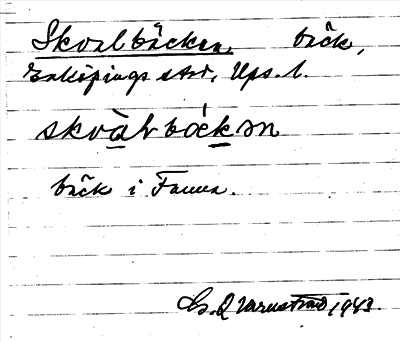 Skvalbäcken, bäck,
Enköpings stad, Ups. l.
skvàlbäkkən
bäck i Fanna.
1943.